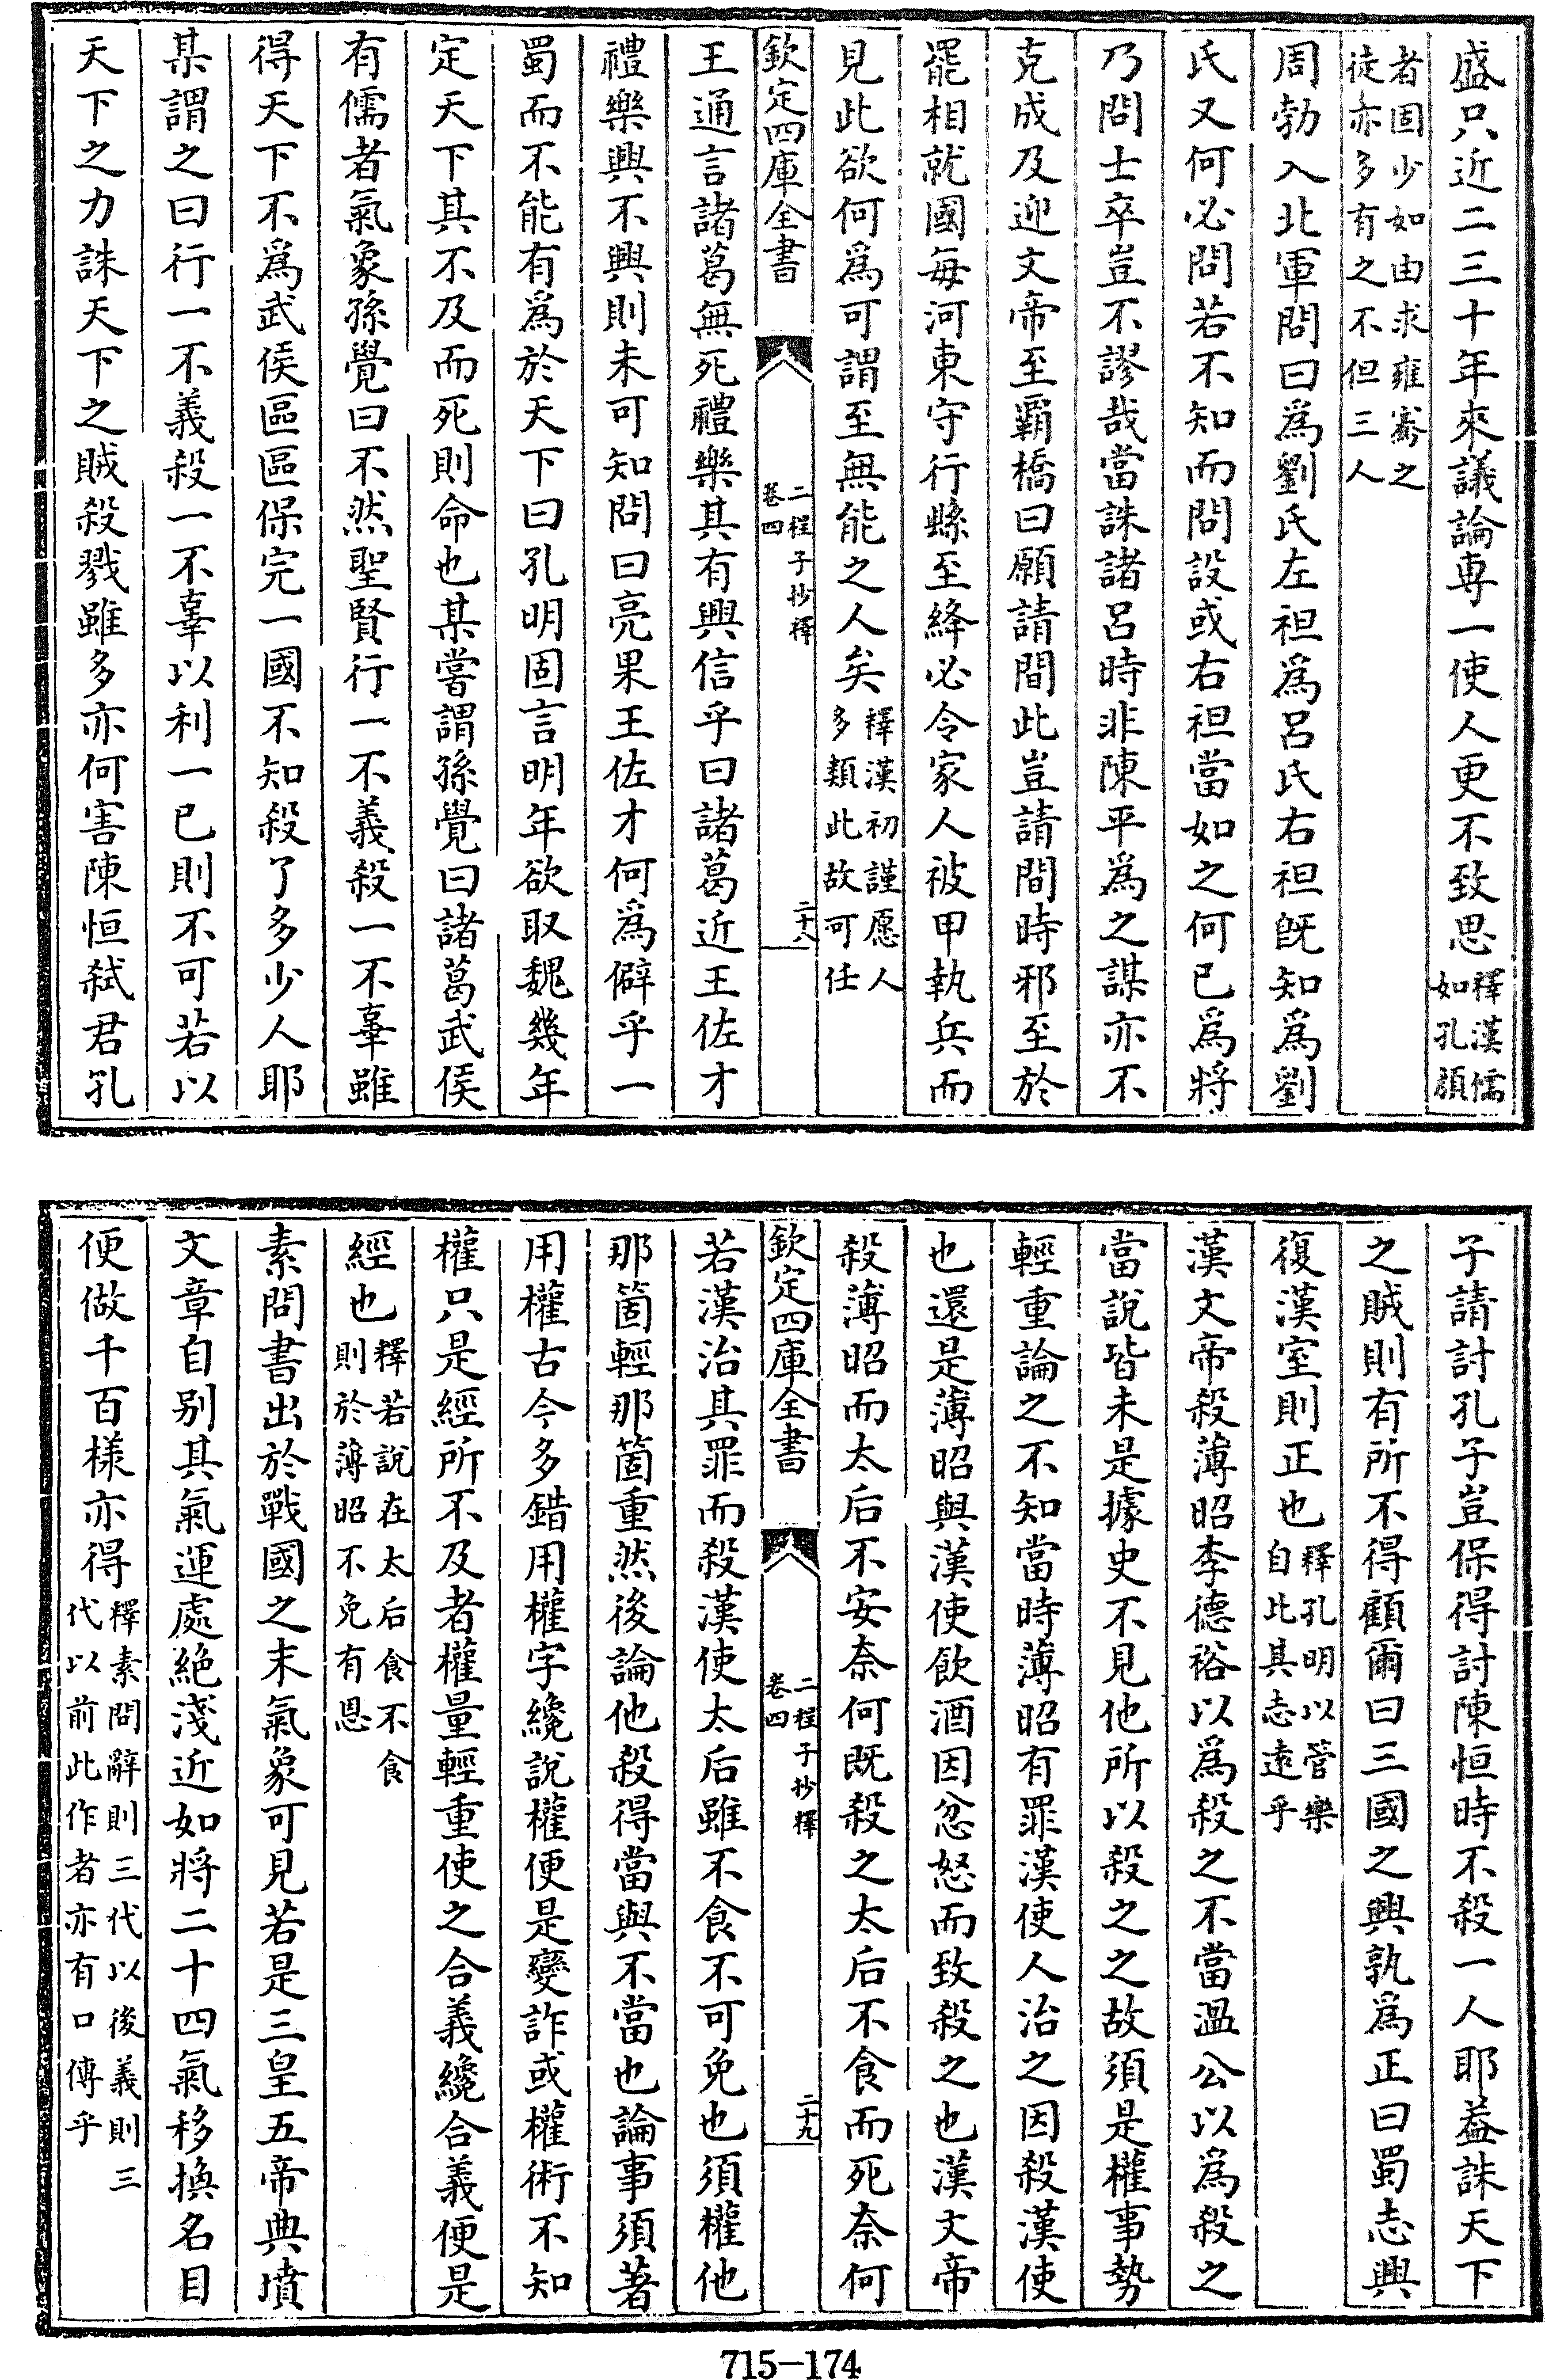 盛只近二三十年來議論專一使人更不致思釋漢儒
如孔顔
者固少如由求雍騫之
徒亦多有之不但三人
周勃入北軍問曰為劉氏左袒為呂氏右袒既知為劉
氏又何必問若不知而問設或右袒當如之何已為將
乃問士卒豈不謬哉當誅諸呂時非陳平為之謀亦不
克成及迎文帝至霸橋曰願請間此豈請間時邪至於
罷相就國每河東守行縣至絳必令家人被甲執兵而
見此欲何為可謂至無能之人矣釋漢初謹愿人
多類此故可任
欽定四庫全書
二程子抄釋
卷四
二十八
王通言諸葛無死禮樂其有興信乎曰諸葛近王佐才
禮樂興不興則未可知問曰亮果王佐才何為僻乎一
蜀而不能有為於天下曰孔明固言明年欲取魏幾年
定天下其不及而死則命也某嘗謂孫覺曰諸葛武侯
有儒者氣象孫覺曰不然聖賢行一不義殺一不辜雖
得天下不為武侯區區保完一國不知殺了多少人耶
某謂之曰行一不義殺一不辜以利一已則不可若以
天下之力誅天下之賊殺戮雖多亦何害陳恒弑君孔
子請討孔子豈保得討陳恒時不殺一人耶葢誅天下
之賊則有所不得顧爾曰三國之興孰為正曰蜀志興
復漢室則正也釋孔明以管樂
自比其志遠乎
漢文帝殺薄昭李德裕以為殺之不當溫公以為殺之
當說皆未是據史不見他所以殺之之故須是權事勢
輕重論之不知當時薄昭有罪漢使人治之因殺漢使
也還是薄昭與漢使飲酒因忿怒而致殺之也漢文帝
殺薄昭而太后不安奈何既殺之太后不食而死奈何
欽定四庫全書
二程子抄釋
卷四
二十九
若漢治其罪而殺漢使太后雖不食不可免也須權他
那箇輕那箇重然後論他殺得當與不當也論事須著
用權古今多錯用權字纔說權便是變詐或權術不知
權只是經所不及者權量輕重使之合義纔合義便是
經也釋若說在太后食不食
則於薄昭不免有恩
素問書出於戰國之末氣象可見若是三皇五帝典墳
文章自别其氣運處絶淺近如將二十四氣移換名目
便做千百樣亦得釋素問辭則三代以後義則三
代以前此作者亦有口傳乎
715-174